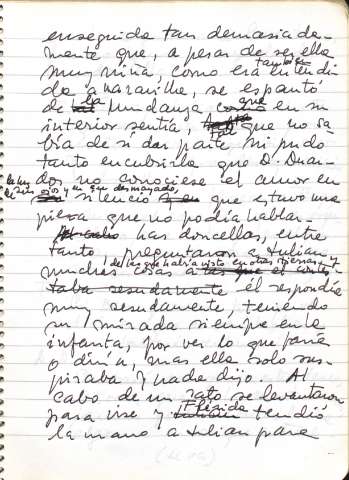 enseguida tan demasiada-
mente que, a pesar de ser ella
muy niña, como era también
entendida a maravilla, se espantó
de la mudanza que en su
interior sentía, que no sa-
bía de si dar parte ni pudo
tanto encubrirla que D. Duar-
dos no conociese el amor en
sus ojos y en que desmayado,
silencio que estuvo una
pieza que no podía hablar.
las doncellas, entre
tanto, preguntaron a Julian
muchas cosas de las que había visto en otras tierras y
él respondía
muy sesudamente, teniendo
su mirada siempre en la
infanta, por ver lo que haría
o diría, mas ella solo sus-
piraba y nada dijo. Al
cabo de un rato se levantaron
para irse y Flérida tendió
la mano a Julian para